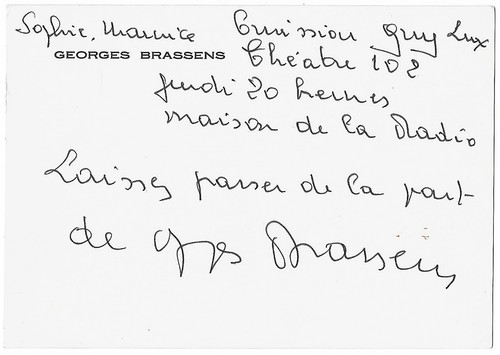 Sophie, Maurice Emission Guy Lux
GEORGES BRASSENS Théatre 102
Jeudi 20 heures
maison de la Radio
Laissez passer de la part
de Ges Brassens